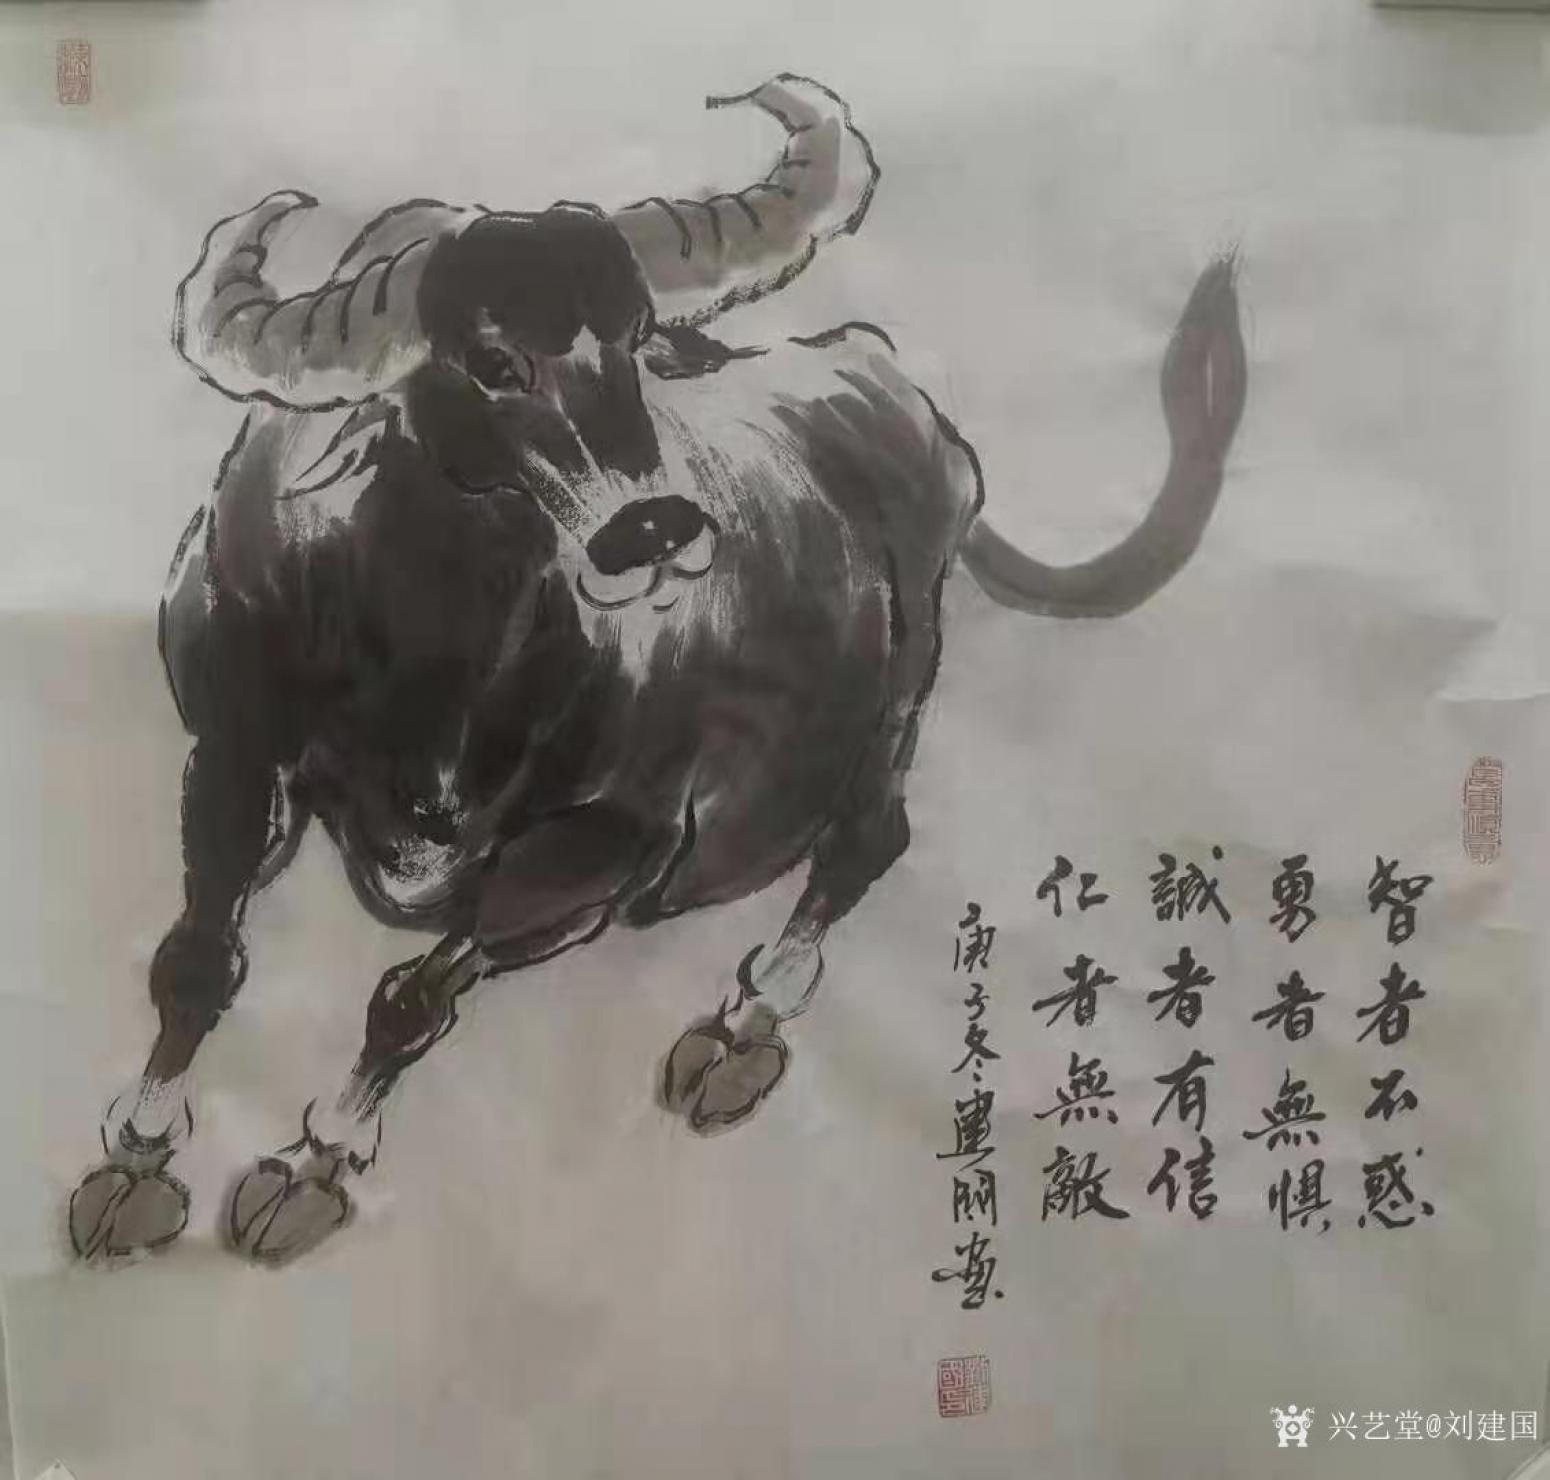 智者不惑
勇者無懼
誠者有信
仁者無敵
庚子冬建國画
兴艺堂@刘建国